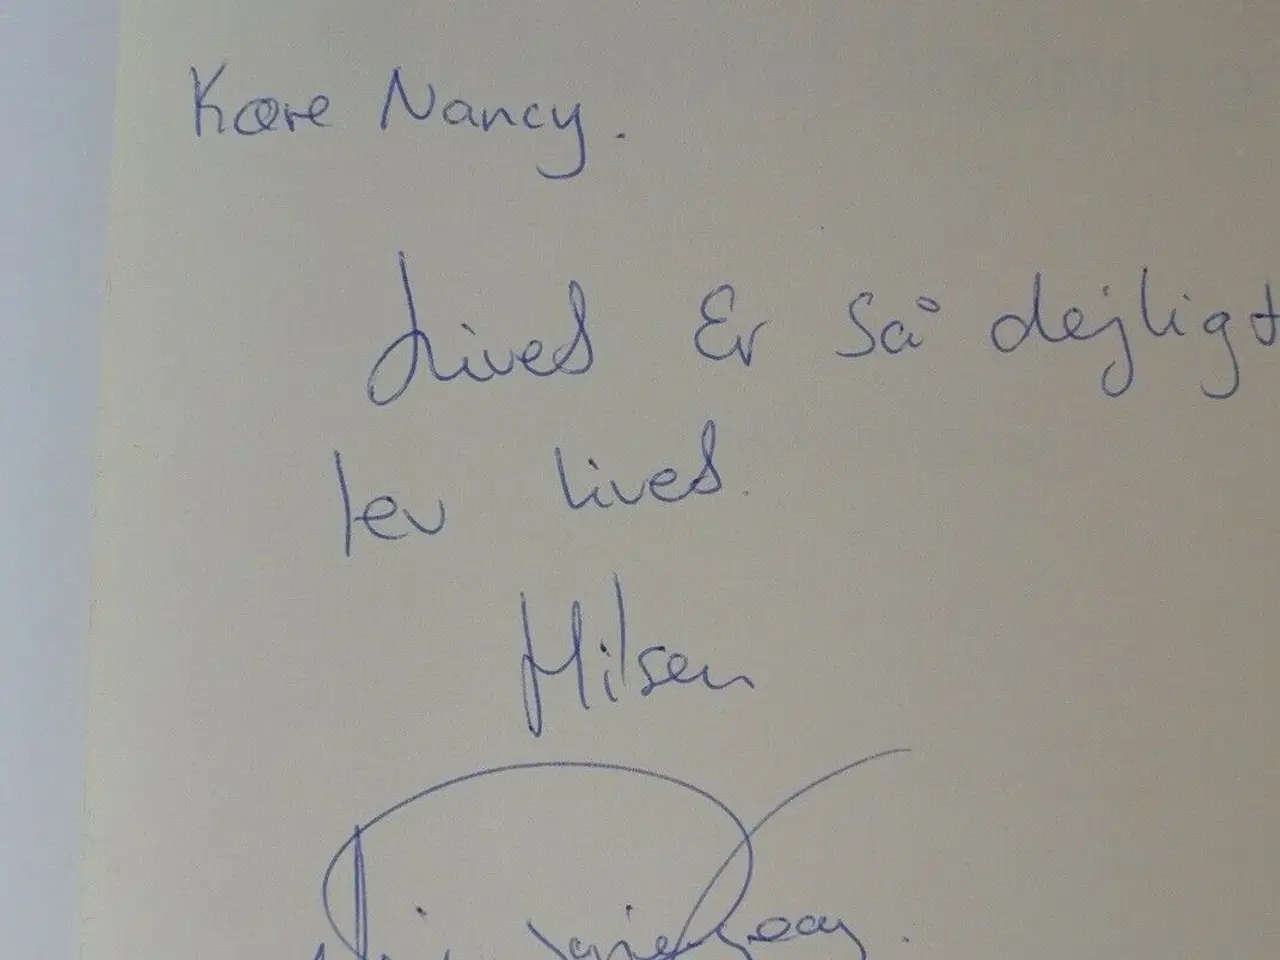 Kære Nancy.
Livet Er Så dejligt
lev livet.
Hilsen